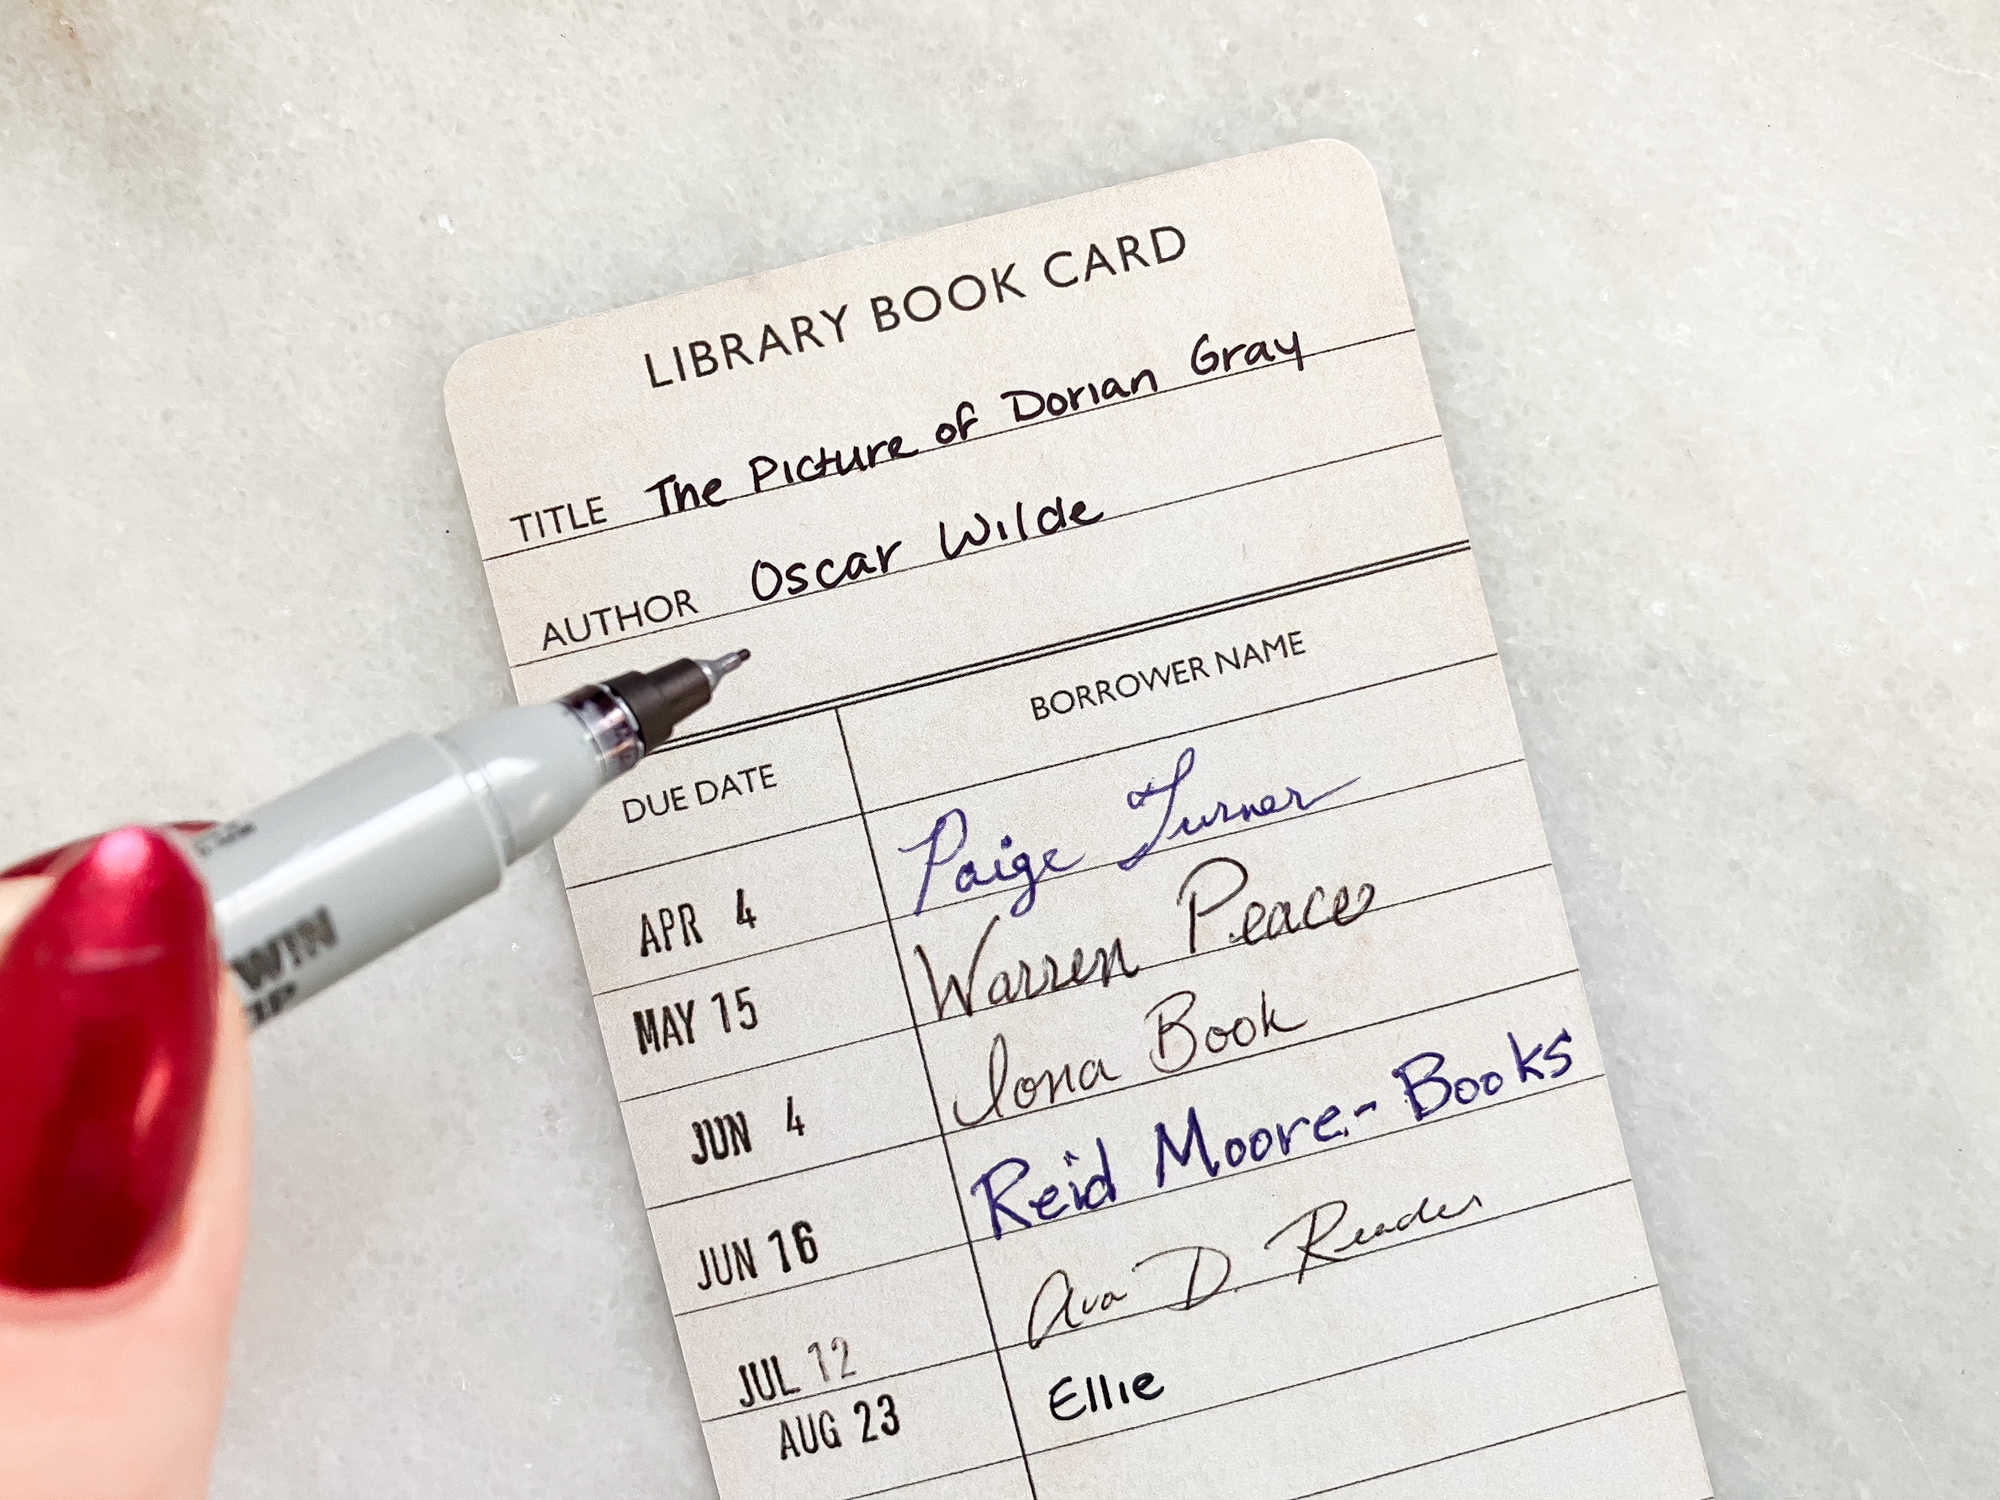 LIBRARY BOOK CARD
TITLE The Picture of Dorian Gray
AUTHOR Oscar Wilde
DUE DATE BORROWER NAME
APR 4 Paige Turner
MAY 15 Warren Peace
JUN 4 Iona Book
JUN 16 Reid Moore-Books
JUL 12 Ava D. Reader
AUG 23 Ellie
WIN